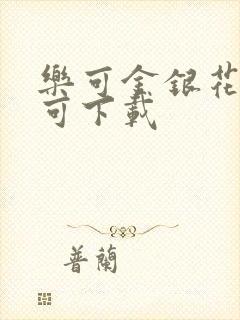 樂可金銀花
可下載
普蘭